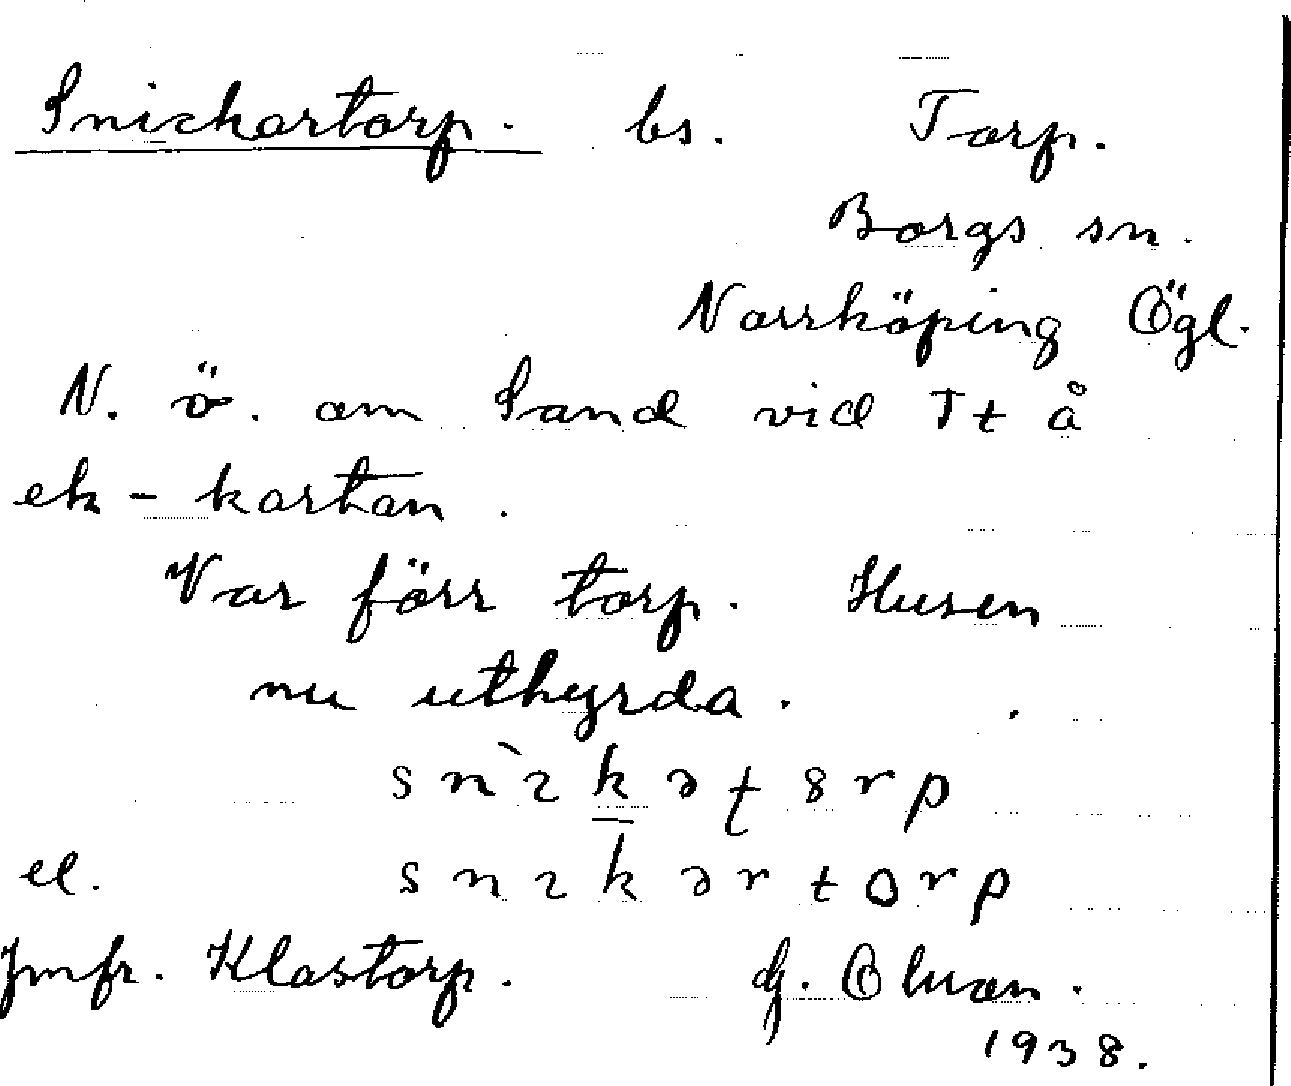 Snickartorp. bs. Torp.
Borgs sn.
Norrköping Ögl.
N. ö. om Sand vid Tt å
ek-kartan.
Var förr torp. Husen
nu uthyrda.
el.
Jmfr. Klastorp. G. Olson.
1938.